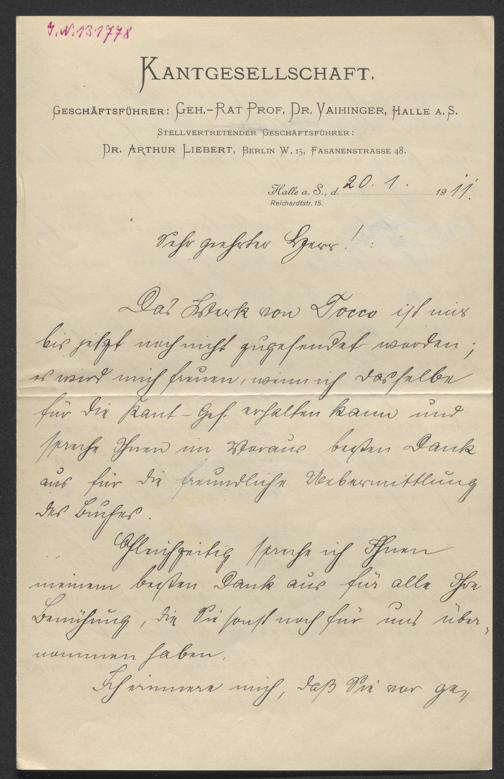 J.N.131778
KANTGESELLSCHAFT.
GESCHÄFTSFÜHRER: GEH.-RAT PROF. DR. VAIHINGER, HALLE A. S.
STELLVERTRETENDER GESCHÄFTSFÜHRER:
DR. ARTHUR LIEBERT, BERLIN W. 15, FASANENSTRASSE 48.
Halle a. S., d. 20. 1. 1911.
Reichardtstr. 15.
Sehr geehrter Herr!
Das Werk von Tocco ist mir
bis jetzt noch nicht zugesendet worden;
es wird mich freuen, wenn ich dasselbe
für die Kant-Ges. erhalten kann und
spreche Ihnen im Voraus besten Dank
aus für die freundliche Uebermittlung
des Buches.
Gleichzeitig spreche ich Ihnen
meinen besten Dank aus für alle Ihre
Bemühung, die Sie sonst noch für uns über-
nommen haben.
Ich erinnere mich, daß Sie vor ge-